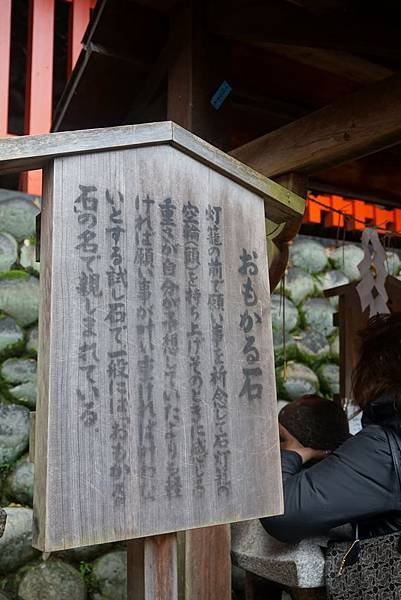 おもかる石
灯籠の前で願い事を祈念して石灯籠の
空輪(頭)を持ち上げ、そのときに感じる
重さが自分が予想していたよりも軽
ければ願い事が叶い、重ければ叶わな
いとする試し石で一般には"おもかる
石"の名で親しまれている